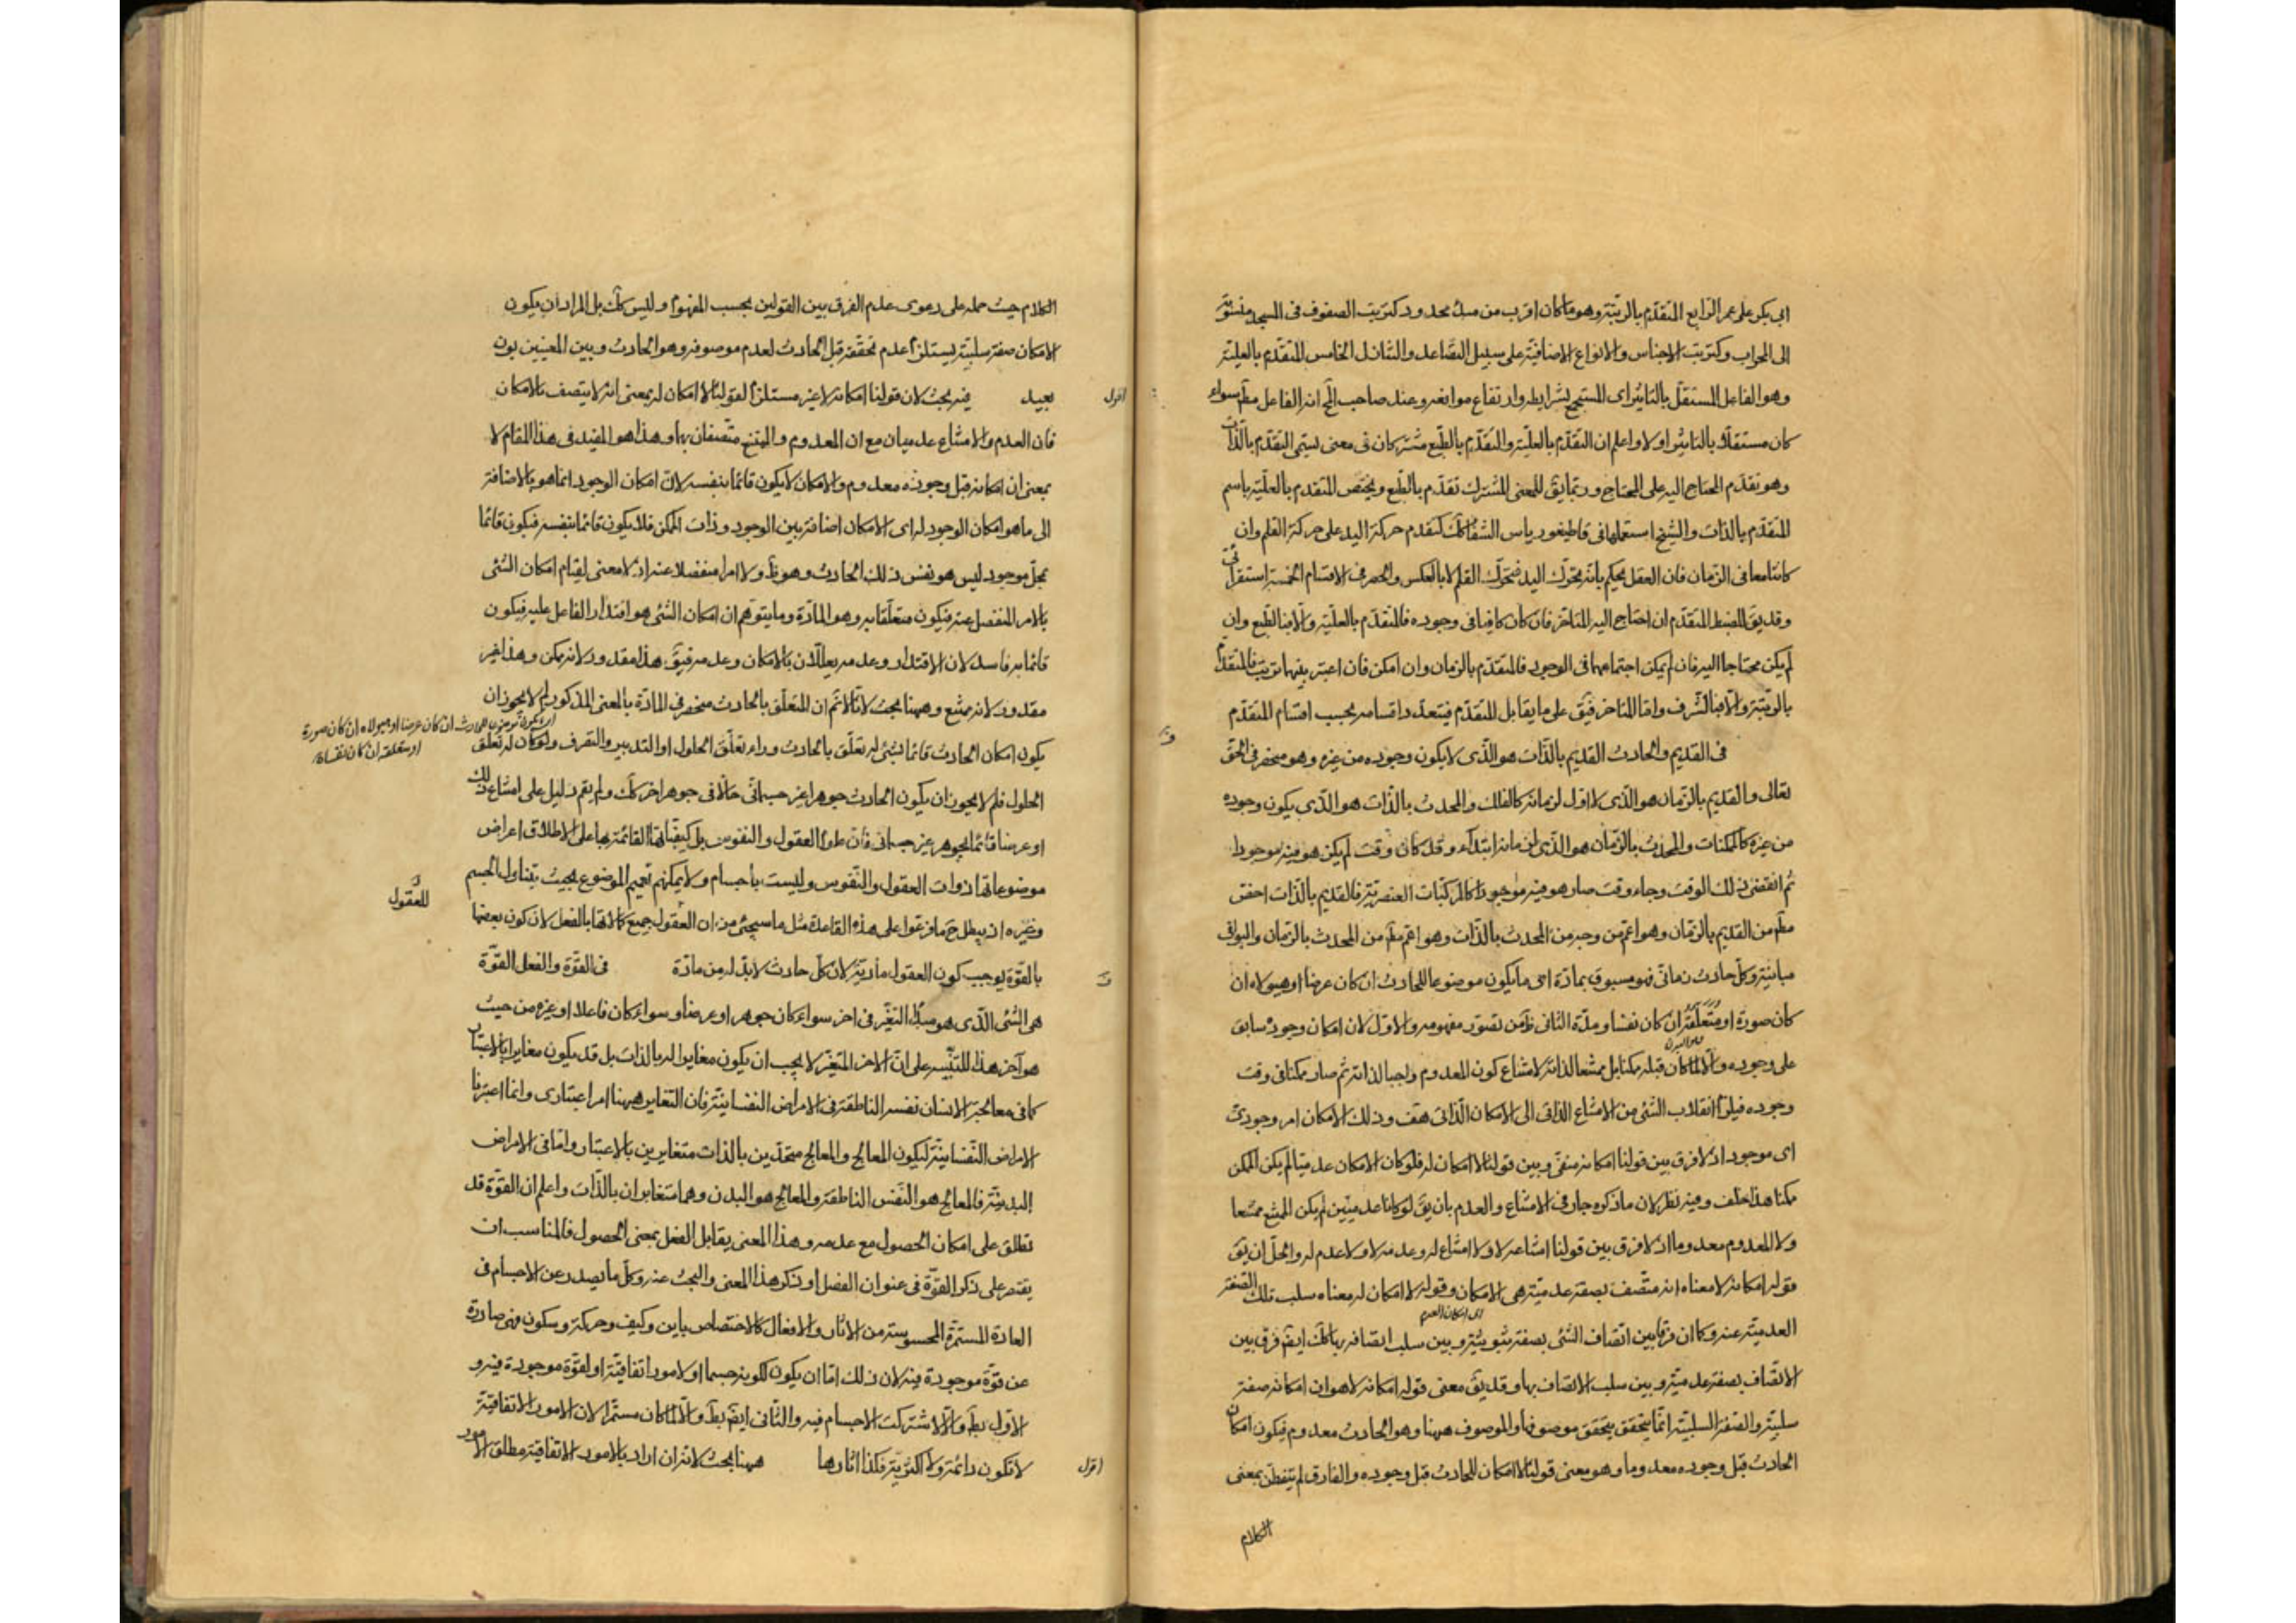 ابي بكر على عمر الرابع المتقدم بالرتبة وهو ما كان اقرب من مبدأ محدود كترتيب الصفوف في المسجد منسوبة
الى المحراب وكترتيب الاجناس والانواع الاضافية على سبيل التصاعد والتنازل الخامس المتقدم بالعلية
وهو الفاعل المستقل بالتاثير اى المستجمع لشرايطه وارتفاع موانعه وعند صاحب المح انه الفاعل مطم سواء
كان مستقلا بالتاثير او لا واعلم ان التقدم بالعلية والتقدم بالطبع مشتركان في معنى يسمى التقدم بالذات
وهو تقدم المحتاج اليه على المحتاج وربما يق للمعنى المشترك تقدم بالطبع ويختص المتقدم بالعلية باسم
المتقدم بالذات والشيخ استعملها في قاطيغورياس الشفا كك كتقدم حركة اليد على حركة القلم وان
كانتا معا في الزمان فان العقل يحكم بانه تحرك اليد فتحرك القلم لا بالعكس والحصر في الاقسام الخمسة استقرائى
وقد يق للضبط المتقدم ان احتاج اليه المتاخر فان كان كافيا في وجوده فالمتقدم بالعلية والا فبالطبع وان
لم يكن محتاجا اليه فان لم يمكن اجتماعهما في الوجود فالمتقدم بالزمان وان امكن فان اعتبر بينهما ترتيب فالمتقدم
بالرتبة والا فبالشرف واما المتاخر فيق على ما يقابل المتقدم فيتعدد اقسامه بحسب اقسام المتقدم
في القديم والحادث القديم بالذات هو الذى لا يكون وجوده من غيره وهو منحصر في الحق
تعالى والقديم بالزمان هو الذى لا اول لزمانه كالفلك والمحدث بالذات هو الذى يكون وجوده
من غيره كالممكنات والمحدث بالزمان هو الذى لزمانه ابتداء وقد كان وقت لم يكن هو فيه موجودا
ثم انقضى ذلك الوقت وجاء وقت صار هو فيه موجودا كالمركبات العنصرية فالقديم بالذات اخص
مطم من القديم بالزمان وهو اعم من وجه من المحدث بالذات وهو اعم مطم من المحدث بالزمان والبواقى
مباينة وكل حادث زمانى فهو مسبوق بمادة اى ما يكون موضوعا للحادث ان كان عرضا او هيولاه ان
كان صورة او متعلقة ان كان نفسا ومدة الثانى ظ من تصور مفهومه والاول لان امكان وجوده سابق
على وجوده والا لما كان قبله ممكنا بل ممتنعا لذاته لامتناع كون المعدوم واجبا لذاته ثم صار ممكنا في وقت
وجوده فيلزم انقلاب الشئ من الامتناع الذاتى الى الامكان الذاتى هف وذلك الامكان امر وجودى
اى موجود اذ لا فرق بين قولنا امكانه منفى وبين قولنا لا امكان له فلو كان الامكان عدميا لم يكن الممكن
ممكنا هذا خلف وفيه نظر لان ما ذكره جار في الامتناع والعدم بان يق لو كانا عدميين لم يكن الممتنع ممتنعا
ولا المعدوم معدوما اذ لا فرق بين قولنا امتناعه لا ولا امتناع له وعدمه لا ولا عدم له والحل ان يق
قوله امكانه لا معناه انه متصف بصفة عدمية هى الامكان وقوله لا امكان له معناه سلب تلك الصفة
اى امكان العدم
العدمية عنه وكما ان فرقا بين اتصاف الشئ بصفة ثبوتية وبين سلب اتصافه بها كك ايضم فرق بين
الاتصاف بصفة عدمية وبين سلب الاتصاف بها وقد يق معنى قوله امكانه لا هو ان امكانه صفة
سلبية والصفة السلبية انما يتحقق بتحقق موصوفها والموصوف ههنا وهو الحادث معدوم فيكون امكان
الحادث قبل وجوده معدوما وهو معنى قولنا لا امكان للحادث قبل وجوده والفارق لم يتفطن بمعنى
الكلام
الكلام حيث حمله على دعوى عدم الفرق بين القولين بحسب المفهوم وليس كك بل المراد ان يكون
الامكان صفة سلبية يستلزم عدم تحققه قبل الحادث لعدم موصوفه وهو الحادث وبين المعنيين بون
بعيد فيه بحث لان قولنا امكانه لا غير مستلزم لقولنا لا امكان له بمعنى انه لا يتصف بالامكان
اقول
فان العدم والامتناع عدميان مع ان المعدوم والممتنع متصفان بها وهذا هو المفيد في هذا المقام لا
بمعنى ان امكانه قبل وجوده معدوم والامكان لا يكون قائما بنفسه لان امكان الوجود انما هو بالاضافة
الى ما هو امكان الوجود له اى الامكان اضافة بين الوجود وذات الممكن فلا يكون قائما بنفسه فيكون قائما
بمحل موجود ليس هو نفس ذلك الحادث وهو ظ ولا امرا منفصلا عنه اذ لا معنى لقيام امكان الشئ
بالامر المنفصل عنه فيكون متعلقا به وهو المادة وما يتوهم ان امكان الشئ هو اقتدار الفاعل عليه فيكون
قائما به فاسد لان الاقتدار وعدمه يعللان بالامكان وعدمه فيق هذا مقدور لانه ممكن وهذا غير
مقدور لانه ممتنع وههنا بحث لانا لا نم ان المتعلق بالحادث منحصر في المادة بالمعنى المذكور لم لا يجوز ان
اى يكون موضوع الحادث ان كان عرضا او هيولاه ان كان صورة
او متعلقة ان كان نفسا
يكون امكان الحادث قائما بشئ له تعلق بالحادث وراء تعلق الحلول او التدبير والتصرف ولو كان له تعلق
الحلول فلم لا يجوز ان يكون الحادث جوهرا غير جسمانى حالا في جوهر اخر كك ولم يقم دليل على امتناع ذلك
او عرضا قائما بجوهر غير جسمانى فان علوم العقول والنفوس بل كيفياتها القائمة بها على الاطلاق اعراض
موضوعاتها ذوات العقول والنفوس وليست باجسام ولا يمكنهم تعميم الموضوع بحيث يتناول الجسم
للعقول
وغيره اذ يبطل ح ما فرعوا على هذه القاعدة مثل ما سيجئ من ان العقول جميع كمالاتها بالفعل لان كون بعضها
بالقوة يوجب كون العقول مادية لان كل حادث لا بد له من مادة في القوة والفعل القوة
هى الشئ الذى هو مبدأ التغير في اخر سواء كان جوهرا او عرضا وسواء كان فاعلا او غيره من حيث
هو آخر هذا للتنبيه على ان الاخر المتغير لا يجب ان يكون مغايرا له بالذات بل قد يكون مغايرا بالاعتبار
كما في معالجة الانسان نفسه الناطقة في الامراض النفسانية فان التغاير ههنا امر اعتبارى وانما اعتبرنا
الامراض النفسانية ليكون المعالج والمعالج متحدين بالذات متغايرين بالاعتبار واما في الامراض
البدنية فالمعالج هو النفس الناطقة والمعالج هو البدن وهما متغايران بالذات واعلم ان القوة قد
تطلق على امكان الحصول مع عدمه وهذا المعنى يقابل الفعل بمعنى الحصول فالمناسب ان
يقتصر على ذكر القوة في عنوان الفصل او ذكر هذا المعنى والبحث عنه وكل ما يصدر عن الاجسام في
العادة المستمرة المحسوسة من الاثار والافعال كالاختصاص باين وكيف وحركة وسكون فهى صادرة
عن قوة موجودة فيه لان ذلك اما ان يكون لكونه جسما او لامور اتفاقية او لقوة موجودة فيه و
الاول بط والا لاشتركت الاجسام فيه والثانى ايضم بط والا لما كان مستمرا لان الامور الاتفاقية
لا تكون دائمة ولا اكثرية فكذا اثارها ههنا بحث لانه ان اراد بالامور الاتفاقية مطلق الامور
اقول